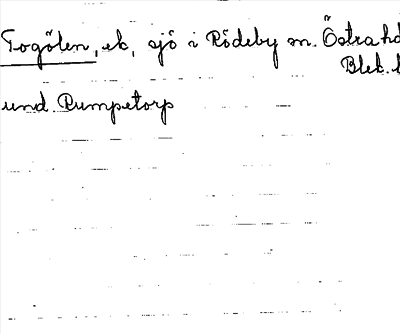 Togölen, ek, sjö i Rödeby sn. Östra hd
Blek. l
und. Rumpetorp